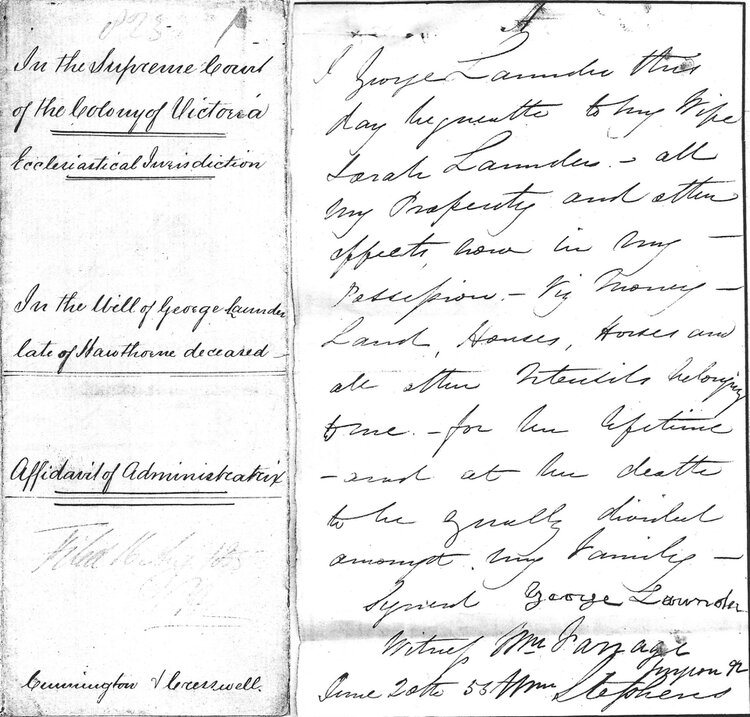 In the Supreme Court
of the Colony of Victoria
Ecclesiastical Jurisdiction
In the Will of George Launder
late of Hawthorne deceased
Affidavit of Administratrix
Filed
Cunnington & Cresswell.
I George Launder this
day bequeathe to my Wife
Sarah Launder. – all
my Property and other
effects, now in my –
Possession. – Viz Money –
Land, Houses, Horses and
all other Utensils belonging
to me. – for her lifetime
– and at her death
to be equally divided
amongst my Family –
Signed George Launder
Witness Wm
June 20th 55 Wm Stephens